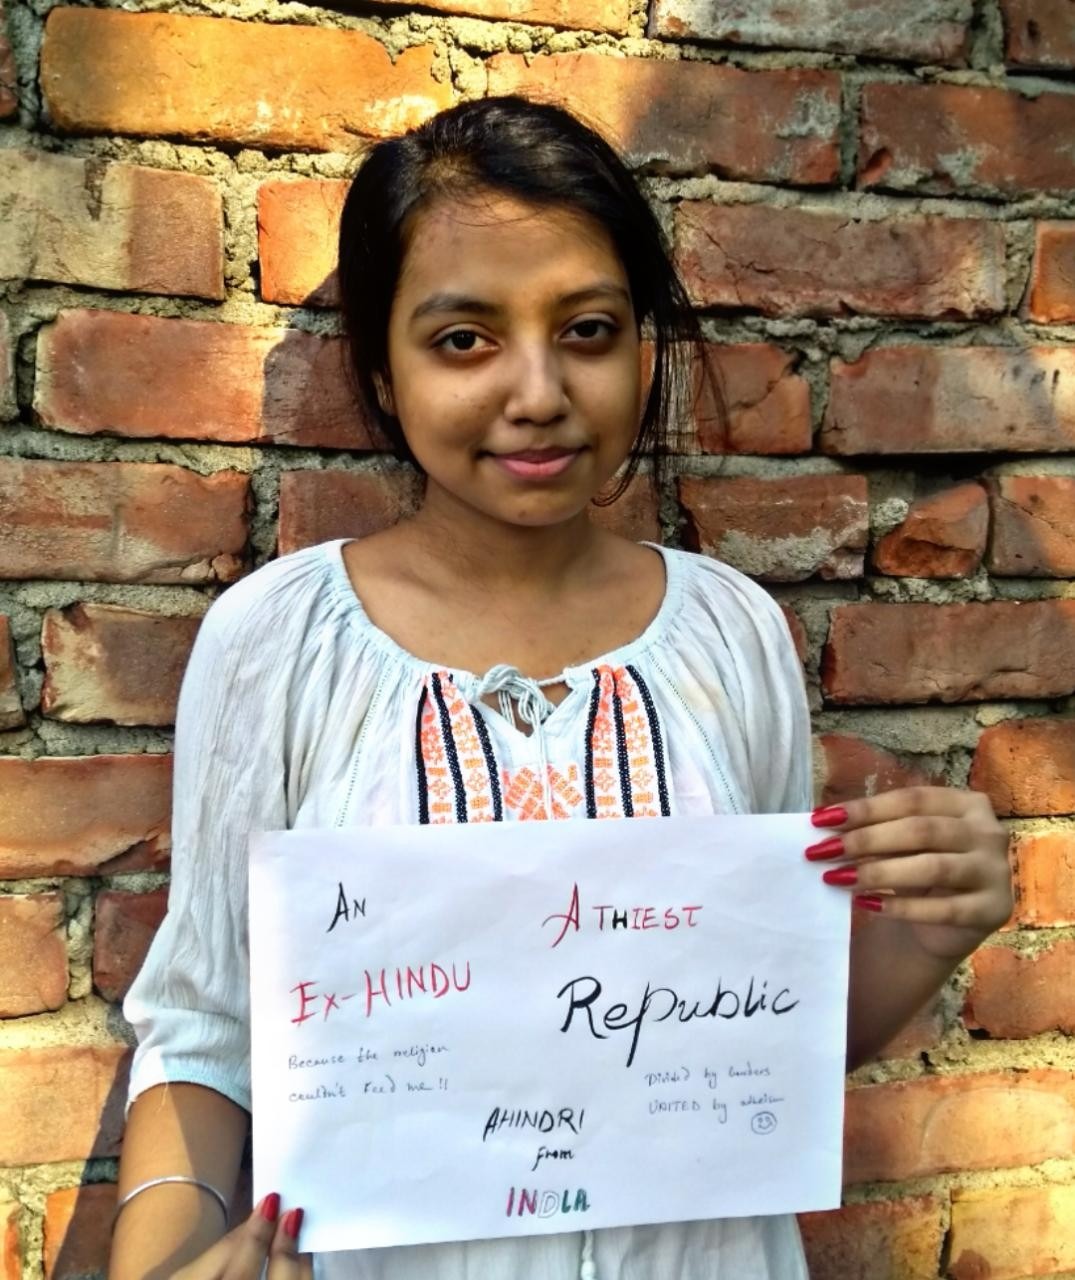 AN
EX-HINDU
Because the religion
couldn't feed me !!
ATHIEST
Republic
Divided by borders
UNITED by atheism
23
AHINDRI
from
INDIA